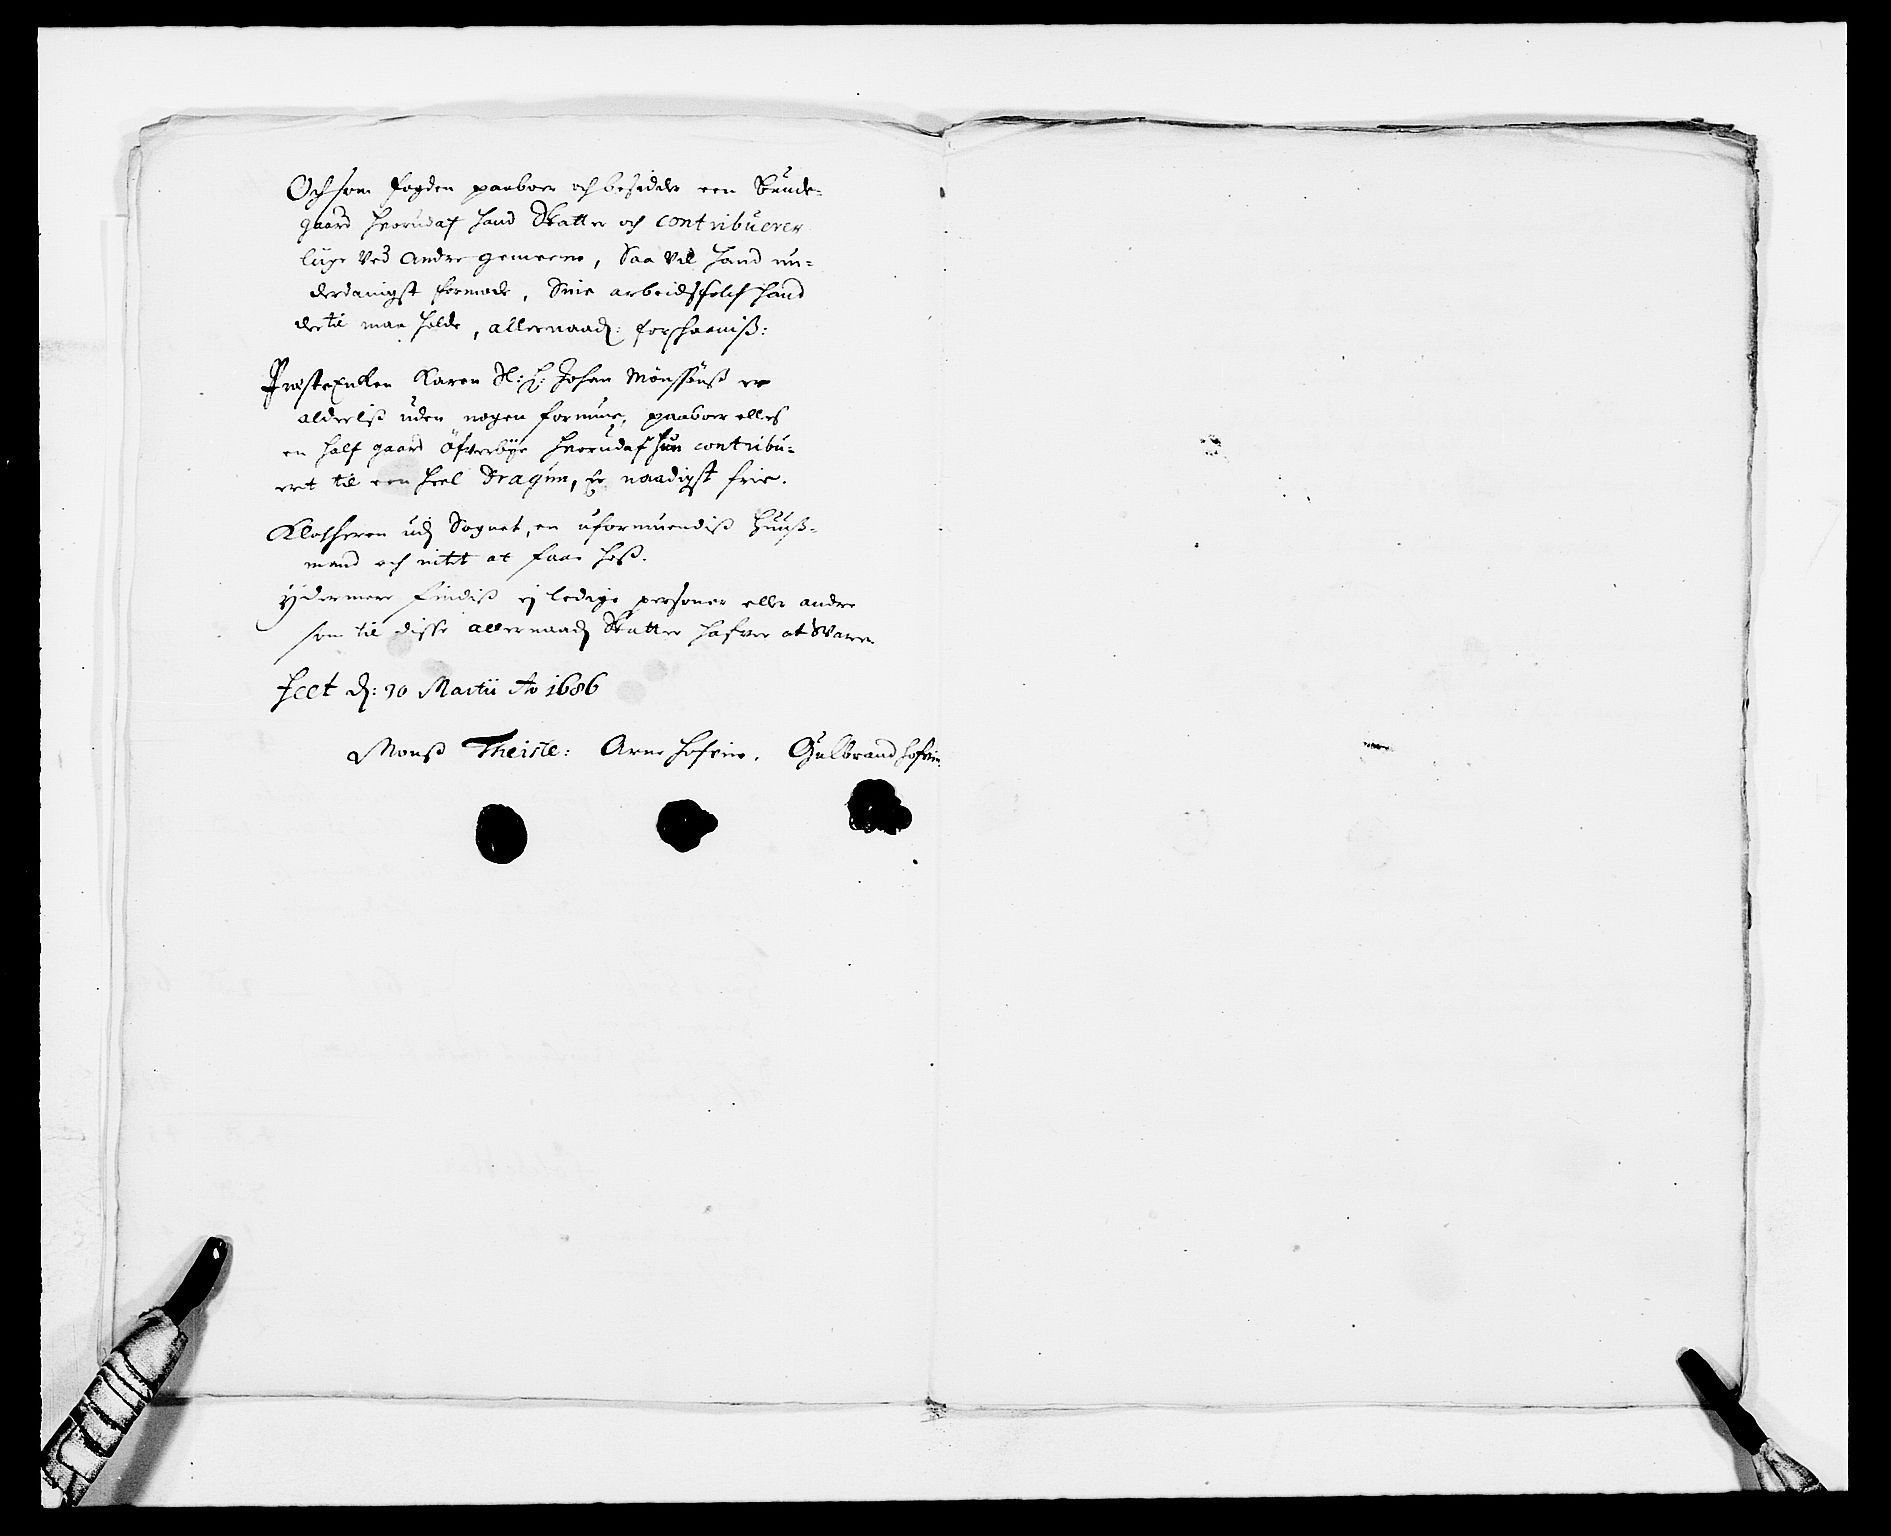 Och som fogden paaboer och besidder een bunde-
gaard hvorudaf hand Skatter och contribuerer
liige ved andre gemeene, Saa vil hand un-
derdanigst formode, Sine arbeidsfolch hand
der til maa holde, allernaad: forschaanisß:
Præstenken Karen Sl: H: Johan Mönsßönsß er
alderlisß uden nogen formue, paaboer elles
en half gaard Öfverbye hvorudaf hun contribu-
ert til een heel Dragun, Er naadigst frie.
Klocheren udj Sognet, en uformuendisß Huusß-
mand och intet at faae hosß.
Ydermere findisß ej ledige personer eller andre
som til disse allernaad Skatter hafver at Svare.
Feet d: 20 Martii Ao 1686
Monsß Theiste: Arne Hofvin. Gulbrand Hofvin.